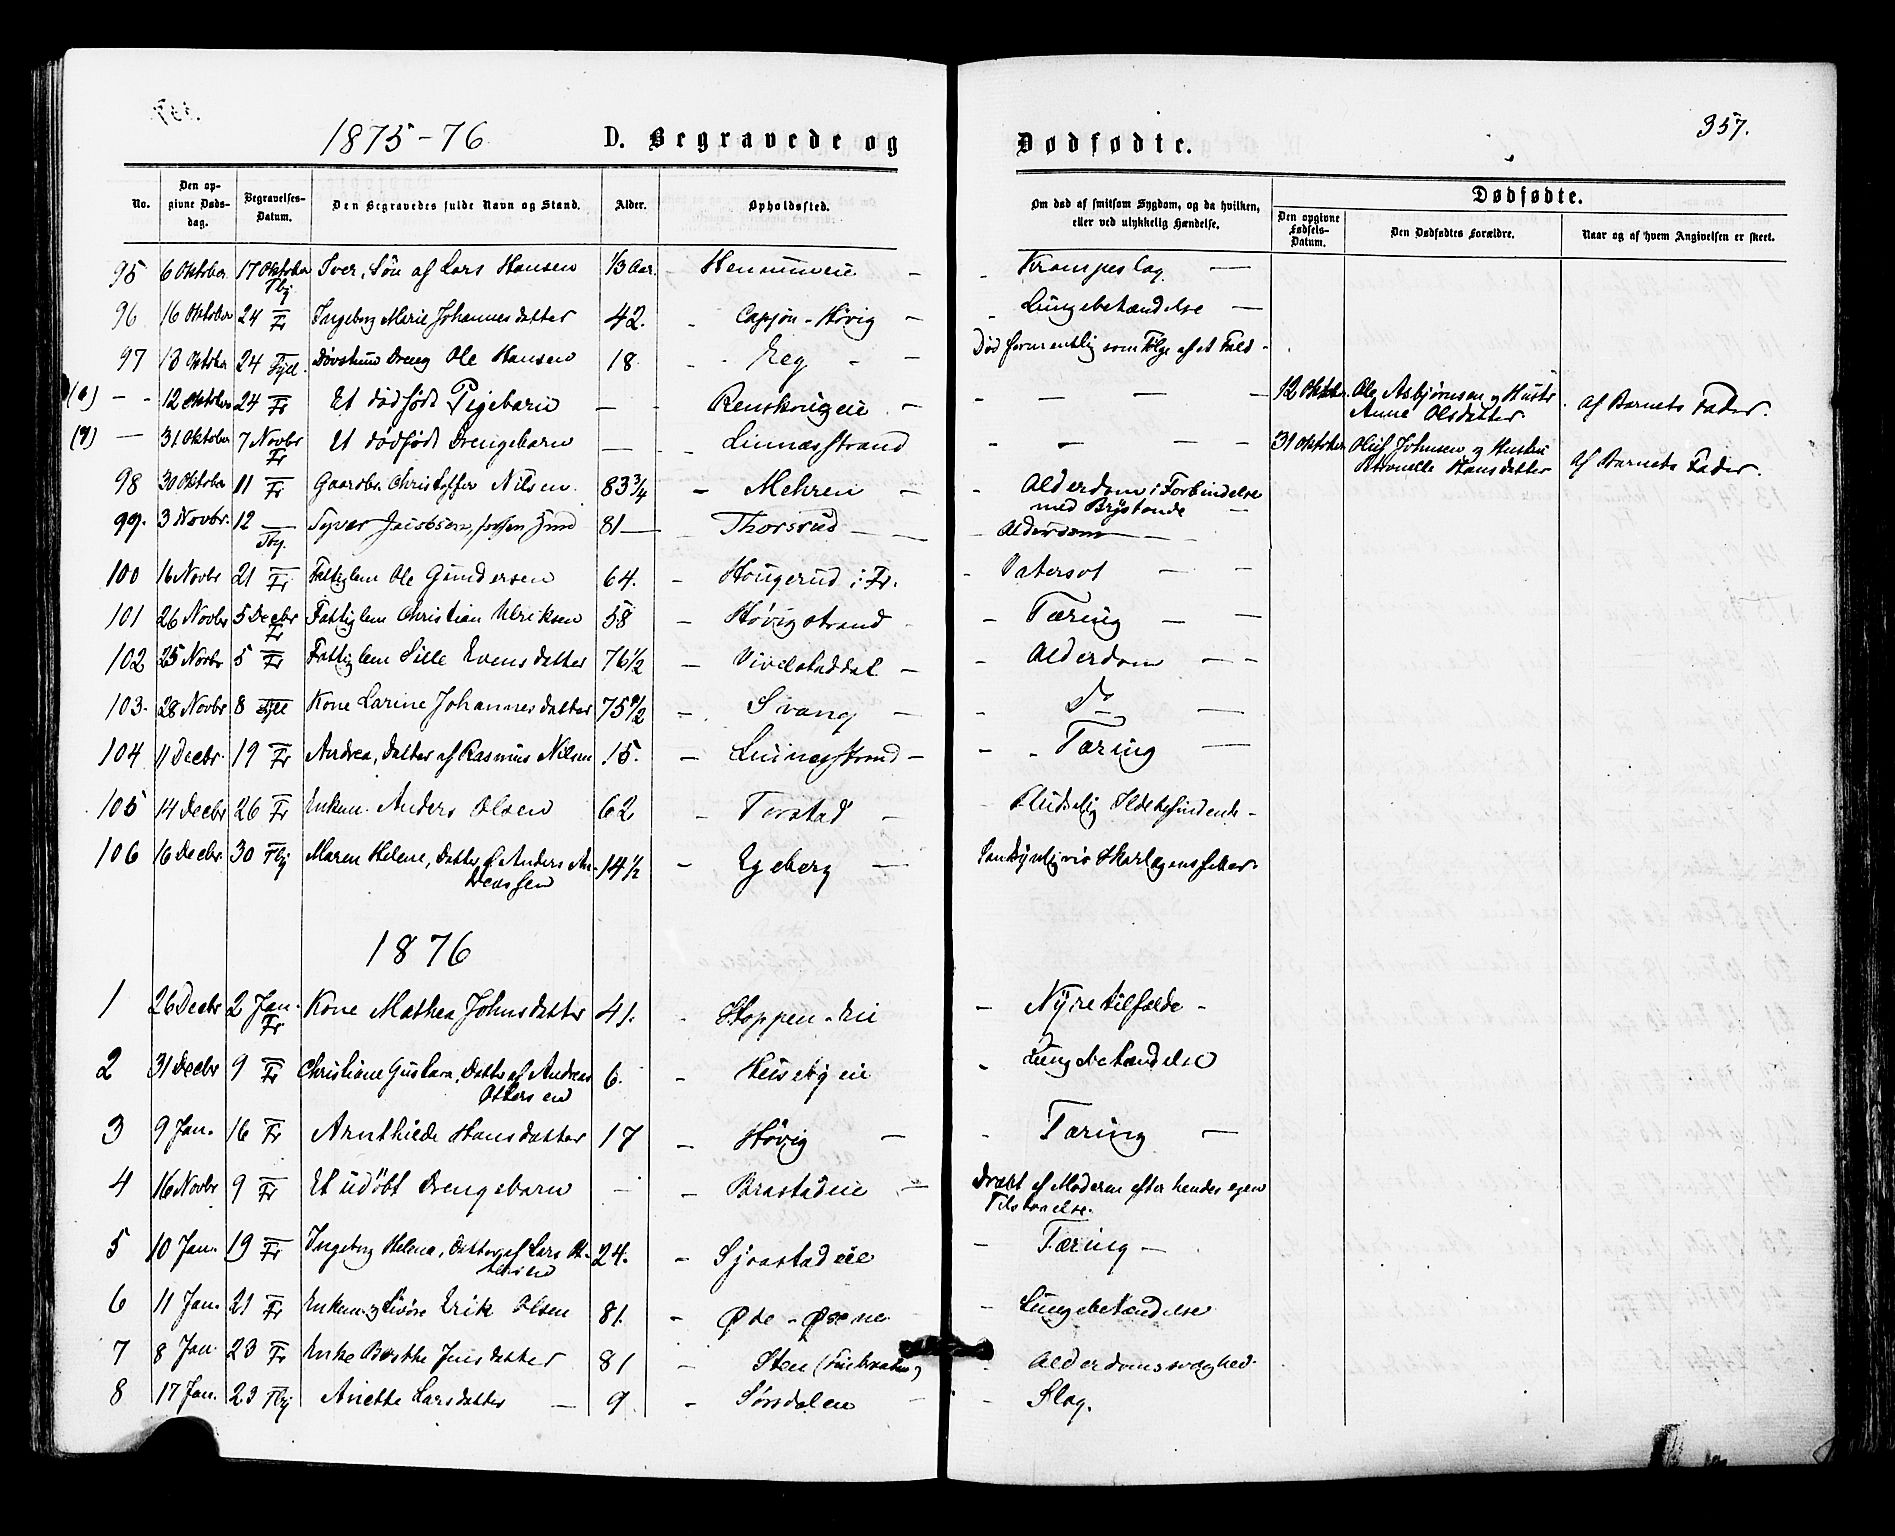 1875-76 D. Begravede og Dødfødte. 357.
No. Den opgivne Dødsdag. Begravelses-Datum. Den Begravedes fulde Navn og Stand. Alder. Opholdssted. Om død af smitsom Sygdom, og da hvilken, eller ved ulykkelig Hændelse. Dødfødte. Den opgivne Fødsels-Datum. Den Dødfødtes Forældre. Naar og af hvem Angivelsen er skeet.
95 6 Oktober 17 Oktober Tbj Iver, Søn af Lars Hansen 1/3 Aar. - - Krampeslag -
96 16 Oktober 24 - Fr Ingeborg Marie Johannesdatter 42. - Høvig - - Lungebetændelse -
97 13 Oktober 24 - Døvstum Dreng Ole Hansen 18 - Eeg - - Død formentlig som Følge af et Fald -
(6) - - 12 Oktober 24 - Fr Et dødfødt Pigebarn - - - - - - - 12 Oktober Ole Asbjørnsen og Hustr Anne Olsdatter af Barnets Fader.
(7) - 31 Oktober 7 Novbr Fr Et dødfødt Drengebarn - - Linnæsstrand - - - - 31 Oktober Oluf Johnsen og Hustru Petronelle Hansdatter Af Barnets Fader.
98 30 Oktober 11 - Fr Gaardbr. Christoffer Nilsen 83 3/4 - Mehren - - Alderdom i Forbindelse
med Brystonde -
99. 3 Novbr. 12 - Tbj. Syver Jacobsen, 81 - - Thorsrud - - - Alderdom - - -
100 16 Novbr 21 - Fr Fattiglem Ole Gundersen 64. - Hougerud i Fr. - Vatersot - -
101 26 Novbr 5 Decbr Fr Fattiglem Christian Ulriksen 58 - Høvigstrand - - Tæring - -
102 25 Novbr 5 - Fr Fattiglem Sille Evensdatter 76 1/2 - Vivelstaddal - - Alderdom - -
103. 28 Novbr 8 - Kone Larine Johannesdatter 75 1/2 - Svang - - Do -
104 11 Decbr. 19 - Fr Andrea, Datter af Rasmus Nilsen 15. - Linnæsstrand - - - Tæring -
105 14 Decbr 26 - Fr Enkem. Anders Olsen 62 - Torstad - - Pludselig Ildebefindende -
106 16 Decbr. 30 - Tbj Maren Helene, Datter af Anders An-
dersen 14 1/2 - Egeberg - Sandsynligvis Skarlagensfeber.
1876
1 26 Decbr 2 Jan. Fr Kone Mathea Johnsdatter 41. - Stoppen-Eie - Nyretilfælde -
2 31 Decbr 9 - Fr Christiane Gustava, Datter af Andreas
Ottersen 6. - Husebyeie - Lungebetændelse
3 9 Jan. 16 - Fr Arnthilde Hansdatter 17 - Høvig - - Tæring -
4 16 Novbr 9 - Fr Et udøbt Drengebarn - - Brastadeie - Dræbt af Moderen efter hendes egen
Tilstaaelse.
5 10 Jan. 19 - Fr Ingeborg Helene, Datter af Lars 24. - Sjaastadeie - Tæring -
6 11 Jan. 21 - Fr Enkem. og Erik Olsen 81. - Øde - - Lungebetændelse
7 8 Jan. 23 - Fr Enke Berthe Jensdatter 81 - Sten - Alderdomssvaghed
8 17 Jan. 23 - Tbj Anette Larsdatter - 9 - Sørsdalen - - Slag.